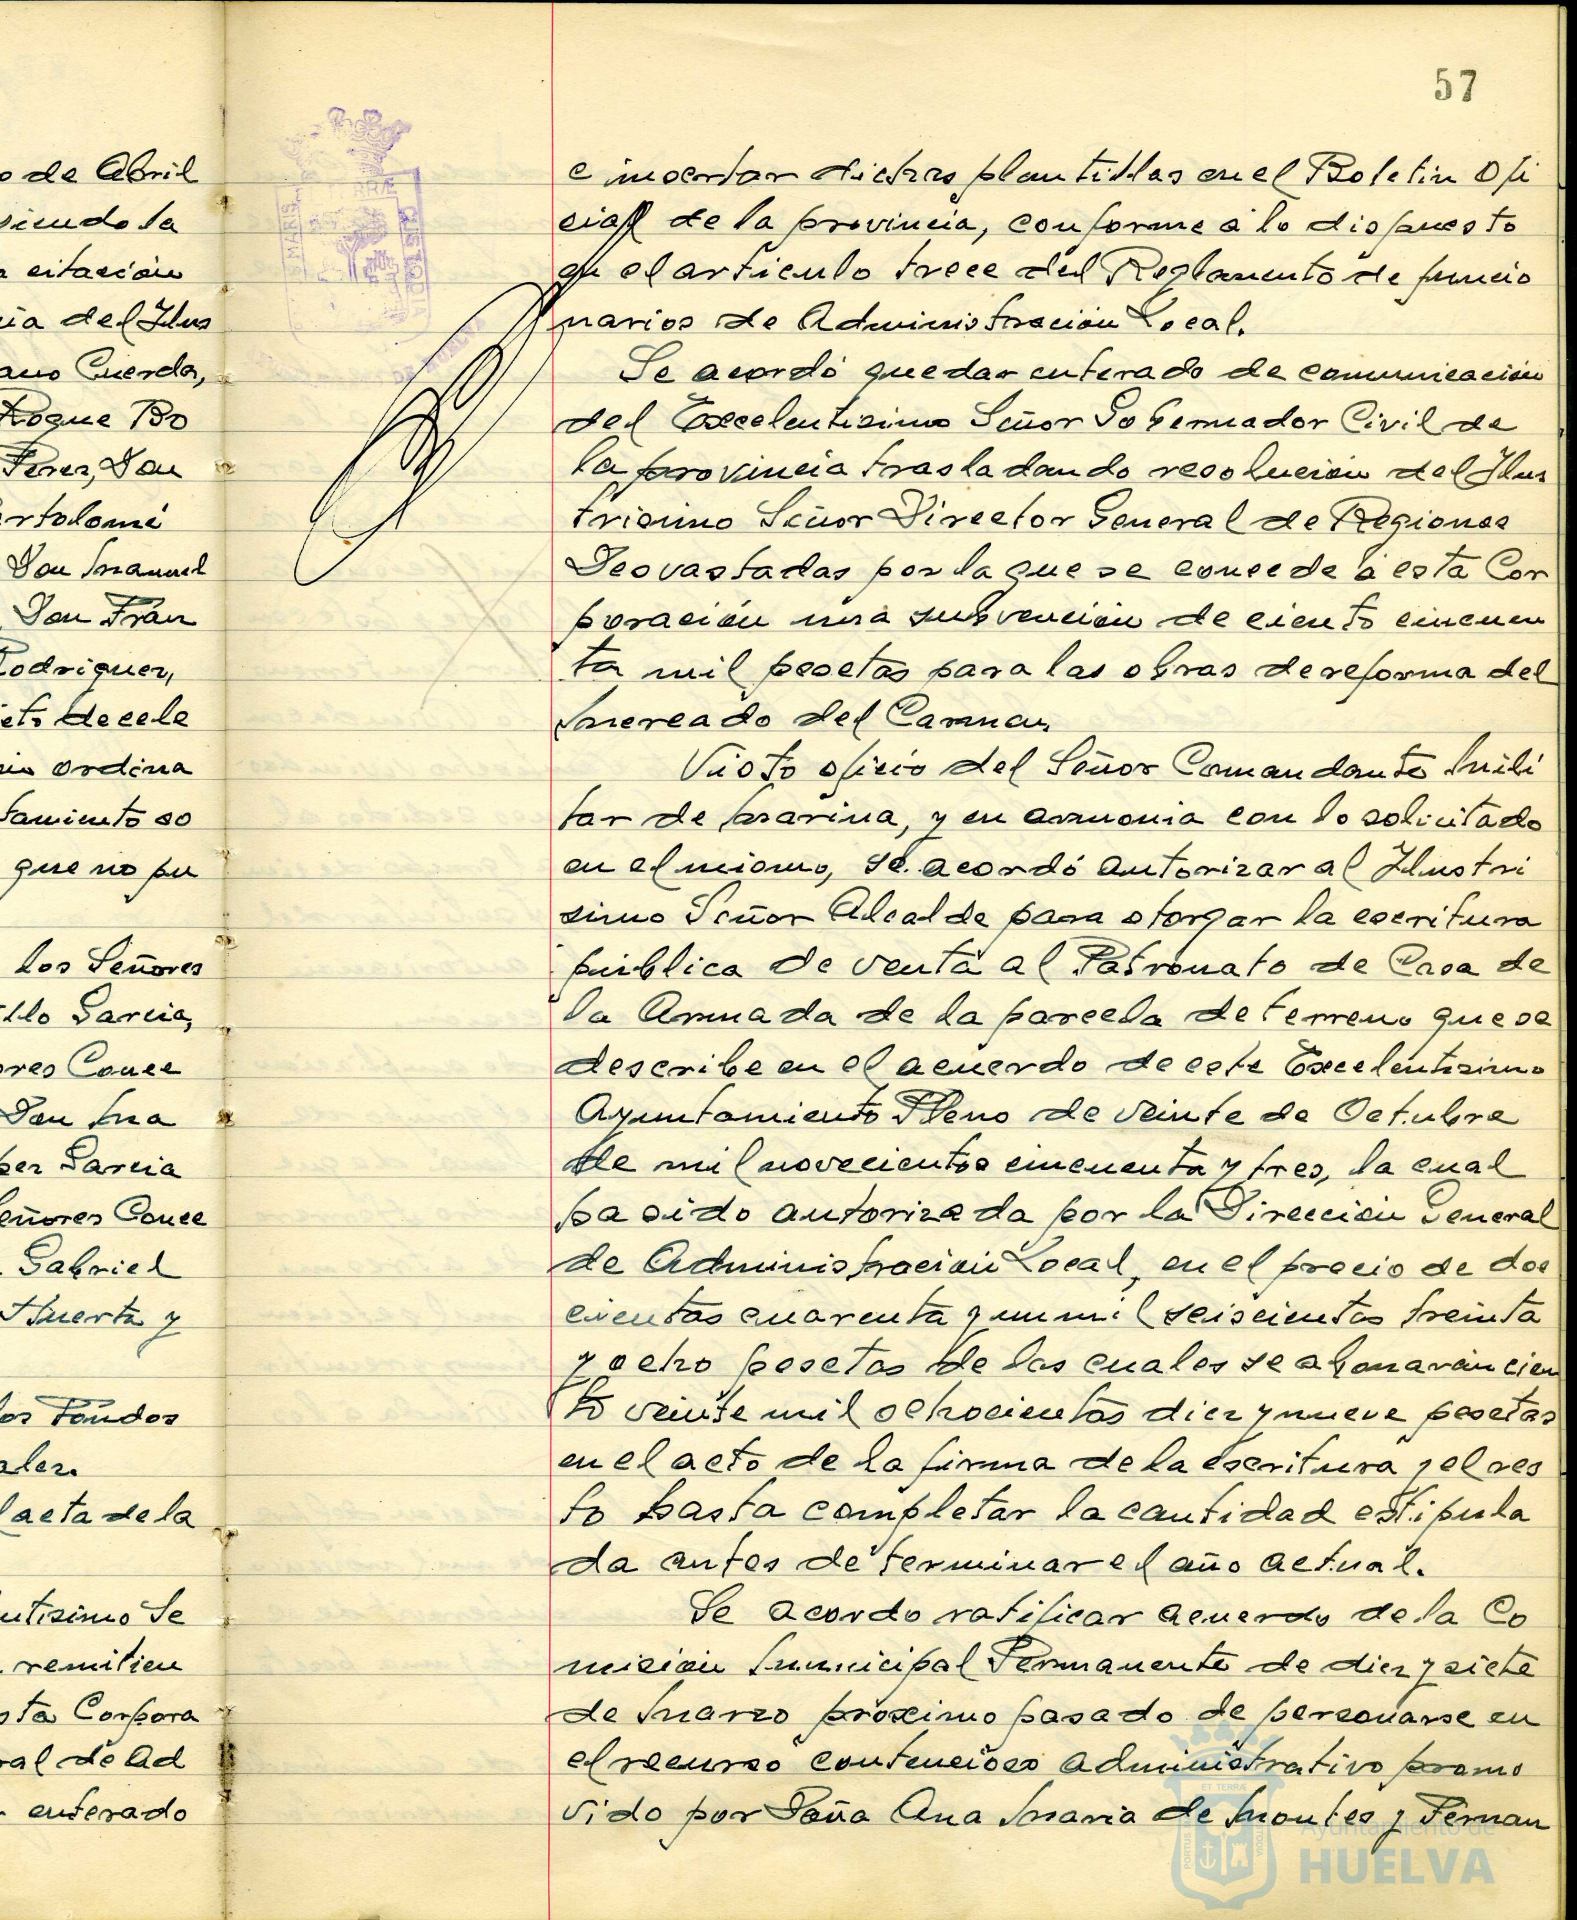 o de Abril
siendo la
citación
ia del Ilus
ano Cuerda,
Roque Bo
Perez, Don
rtolomé
Don Manuel
Don Fran
Rodriguez,
eto de cele
ordina
tamiento so
que no pu
los Señores
illo Garcia,
ores Conce
Don Ma
per Garcia
eñores Conce
Gabriel
Huerta y
los Fondos
ales.
l acta de la
utisimo Se
remitien
sta Corpora
ral de Ad
enterado
57
e insertar dichas plantillas en el Boletin Ofi
cial de la provincia, conforme a lo dispuesto
en el articulo trece del Reglamento de funcio
narios de Administración Local.
Se acordó quedar enterado de comunicación
del Excelentisimo Señor Gobernador Civil de
la provincia trasladando resolución del Ilus
trisimo Señor Director General de Regiones
Devastadas por la que se concede a esta Cor
poración una subvención de ciento cincuen
ta mil pesetas para las obras de reforma del
Mercado del Carmen.
Visto oficio del Señor Comandante Mili
tar de Marina, y en armonia con lo solicitado
en el mismo, se acordó autorizar al Ilustri
simo Señor Alcalde para otorgar la escritura
pública de venta al Patronato de Casa de
la Armada de la parcela de terreno que se
describe en el acuerdo de este Excelentisimo
Ayuntamiento Pleno de veinte de Octubre
de mil novecientos cincuenta y tres, la cual
ha sido autorizada por la Dirección General
de Administración Local, en el precio de dos
cientas cuarenta y un mil seiscientas treinta
y ocho pesetas de las cuales se abonarán cien
to veinte mil ochocientas diez y nueve pesetas
en el acto de la firma de la escritura y el res
to hasta completar la cantidad estipula
da antes de terminar el año actual.
Se acordo ratificar acuerdo de la Co
misión Municipal Permanente de diez y siete
de Marzo próximo pasado de personarse en
el recurso contencioso administrativo promo
vido por Doña Ana Maria de Montes y Fernan
Ayuntamiento de
HUELVA